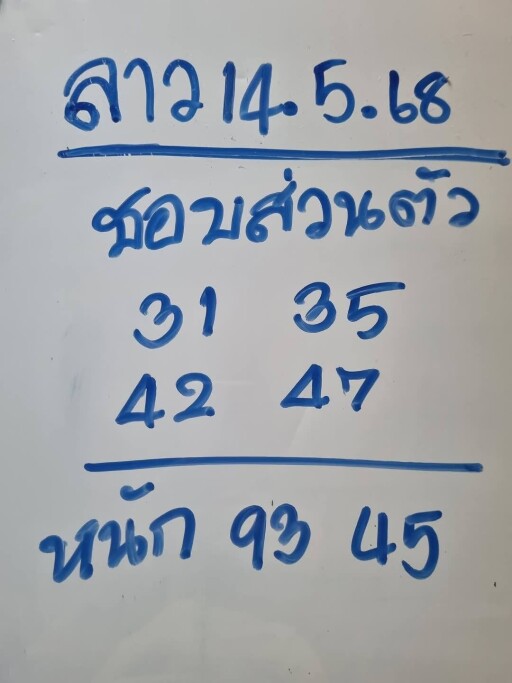 ลาว 14.5.68
ชอบส่วนตัว
31 35
42 47
หนัก 93 45